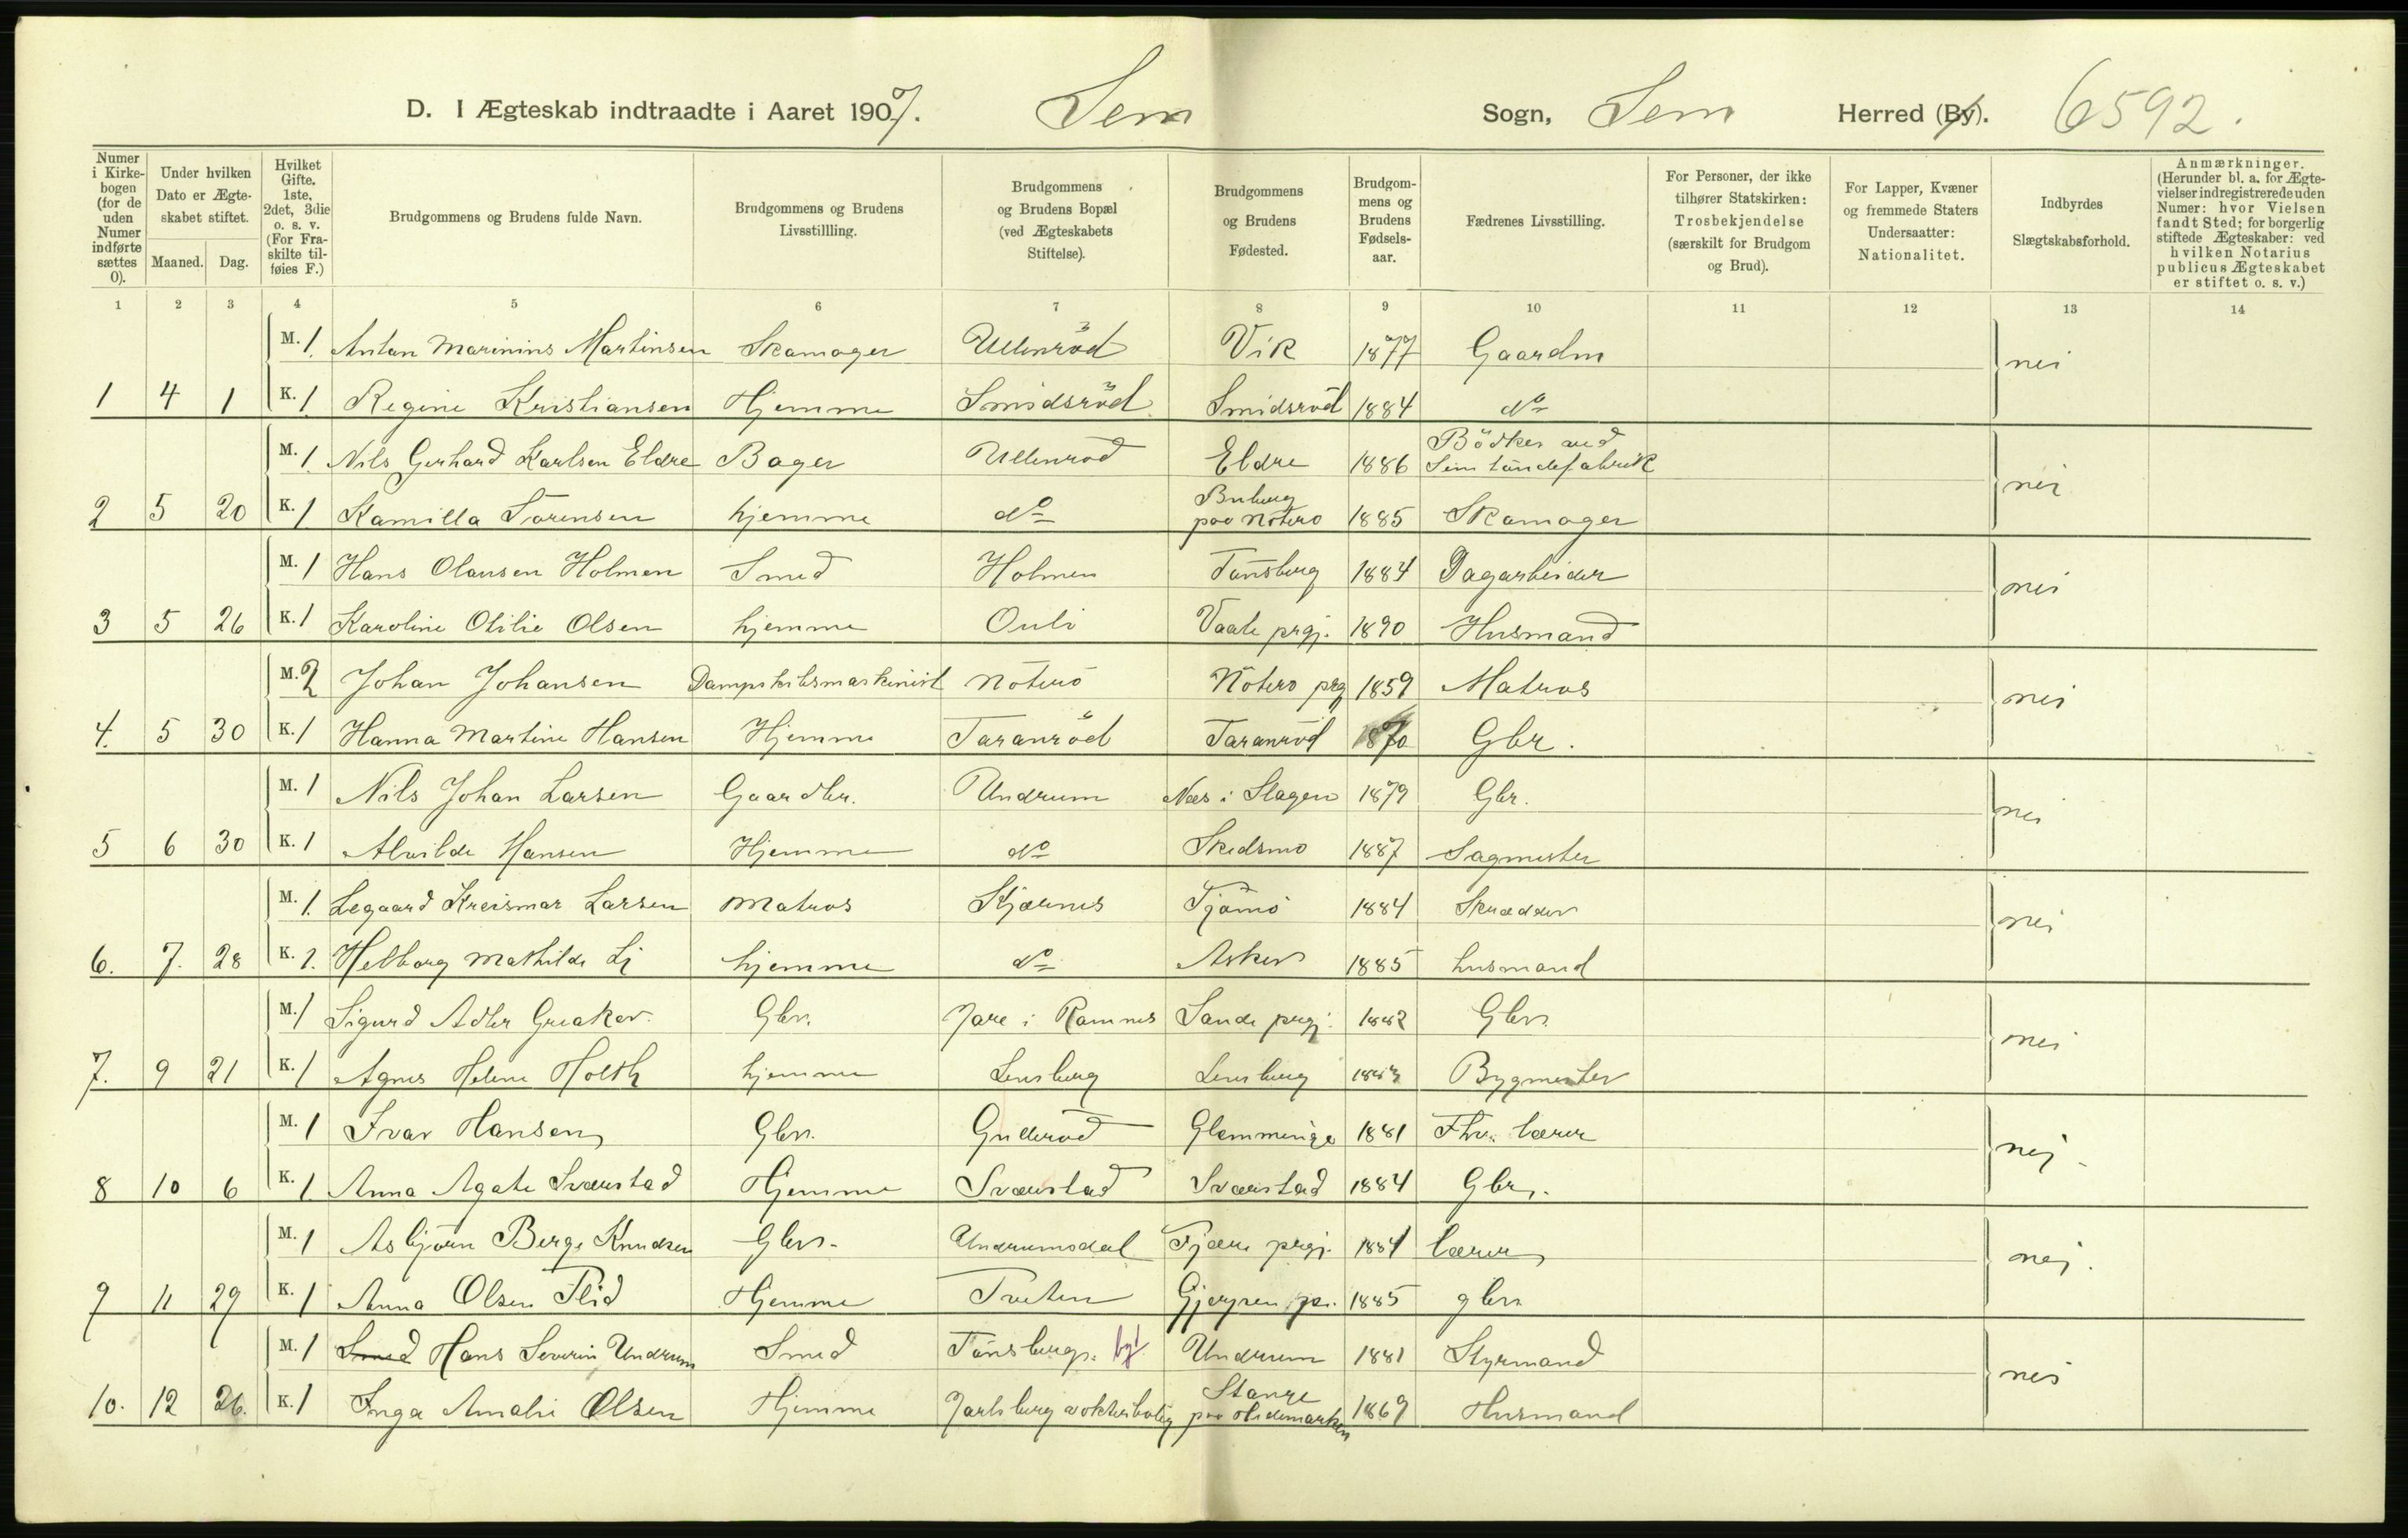 D. I Ægteskab indtraadte i Aaret 1907. Sem Sogn, Sem Herred (By). 6592.
Numer i Kirkebogen (for de uden Numer indførte sættes 0).
Under hvilken Dato er Ægteskabet stiftet.
Maaned. Dag.
Hvilket Gifte. 1ste, 2det, 3die o. s. v. (For Fraskilte tilføies F.)
Brudgommens og Brudens fulde Navn.
Brudgommens og Brudens Livsstillling.
Brudgommens og Brudens Bopæl (ved Ægteskabets Stiftelse).
Brudgommens og Brudens Fødested.
Brudgommens og Brudens Fødselsaar.
Fædrenes Livsstilling.
For Personer, der ikke tilhører Statskirken: Trosbekjendelse (særskilt for Brudgom og Brud).
For Lapper, Kvæner og fremmede Staters Undersaatter: Nationalitet.
Indbyrdes Slægtskabsforhold.
Anmærkninger. (Herunder bl. a. for Ægtevielser indregistrerede uden Numer: hvor Vielsen fandt Sted; for borgerlig stiftede Ægteskaber: ved hvilken Notarius publicus Ægteskabet er stiftet o. s. v.)
1 2 3 4 5 6 7 8 9 10 11 12 13 14
M. 1. Antan Marinius Martinsen Skamager Ullenröd Vik 1877 Gaardm nei
1 4 1 K. 1 Regine Kristiansen Hjemme Smidsröd Smidsröd 1884 do
M. 1. Nils Gerhard Karlsen Eldre Bager Ullenröd Eldre 1886 Bödker ved Sem töndefabrik nei
2 5 20 K. 1 Kamilla Sörensen hjemme do paa Nöterö 1885 Skamager
M. 1 Hans Olausen Holmen Smed Holmen Tönsberg 1884 Dagarbeider nei
3 5 26 K. 1 Karoline Otilie Olsen hjemme Ouli Vaale prgj. 1890 Husmand
M. 2 Johan Johansen Dampskibsmaskinist Nöterö Nöterö prg 1859 Matros nei
4. 5 30 K. 1 Hanna Martine Hansen Hjemme Taranröd Taranröd 1870 Gbr.
M. 1 Nils Johan Larsen Gaardbr. Undrum Næs i Slagen 1879 Gbr. nei
5 6 30 K. 1 Alvilde Hansen Hjemme do Skedsmo 1887 Sagmester
M. 1. Legaard Kreismar Larsen Matros Kjærnes Tjömö 1884 Skrædder nei
6. 7. 28 K. 1. Helborg Mathilde Li hjemme do Asker 1885 husmand
M. 1 Sigurd Adler Greaker. Gbr. Jare i Ramnes Sande prgj. 1882 Gbr. nei
7. 9 21 K. 1 Agnes Helene Holth hjemme Lensberg Lensberg Bygmester
M. 1 Ivar Hansen Gbr. Guderöd Glemminge 1881 Fhv. lærer nej
8 10 6 K. 1 Anna Agate Sværstad Hjemme Sværstad Sværstad 1884 Gbr.
M. 1 Asbjörn Berge Knudsen Gbr. Undrumsdal Fjære prgj. 1884 lærer nej.
9 11 29 K. 1 Anna Olsen Flid Hjemme Tveten Gjerpen p. 1885 gbr.
M. 1 Smed Hans Severin Undrum Smed Tönsberg. by! Undrum 1881 Styrmand nei
10. 12 26. K. 1 Inga Amalie Olsen Hjemme Jarlsberg vokterbolig Stange paa Hedemarken 1869 Husmand